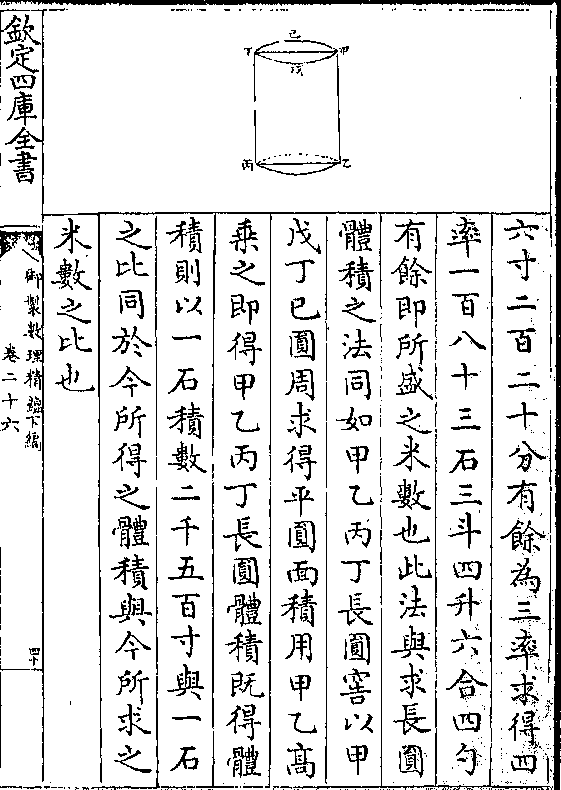 六寸二百二十分有餘為三率求得四
率一百八十三石三斗四升六合四勺
有餘即所盛之米數也此法與求長圓
體積之法同如甲乙丙丁長圓窖以甲
戊丁已圓周求得平圓面積用甲乙高
乘之即得甲乙丙丁長圓體積既得體
積則以一石積數二千五百寸與一石
之比同於今所得之體積與今所求之
米數之比也
已
丁
甲
戊
丙
乙
欽定四庫全書
御製數理精蘊下編
卷二十六
四十